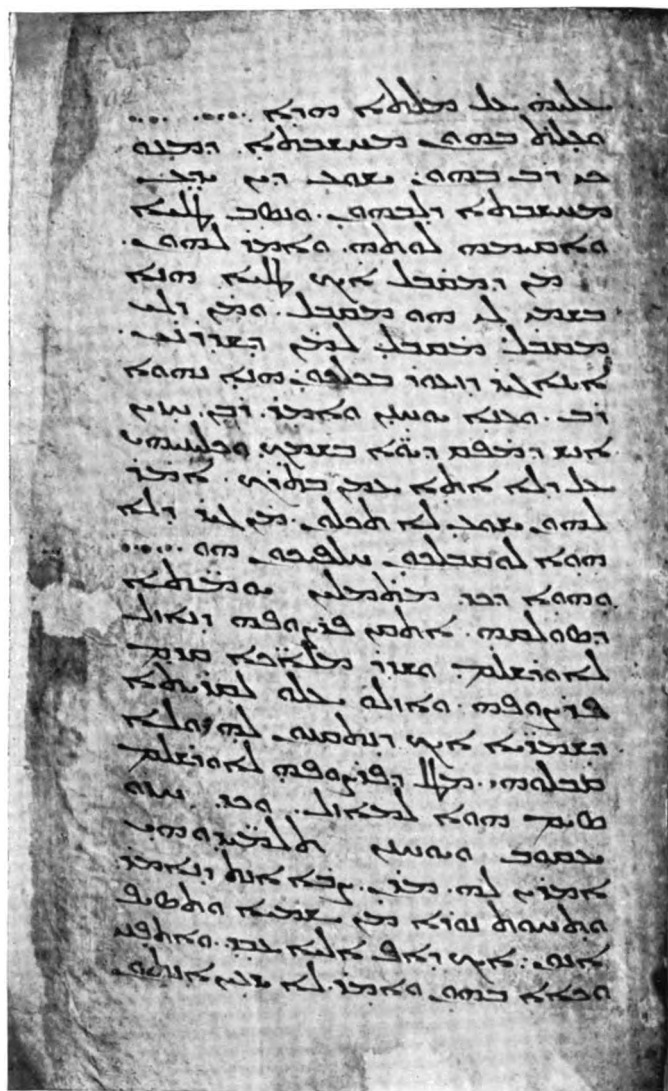 ܥܠ ܡܠܬܐ ܗܕܐ ..... ....
ܘܥܠܬ ܒܗܘܢ ܡܚܫܒܬܐ. ܕܡܢܘ
ܟܝ ܪܒ ܒܗܘܢ. ܝܫܘܥ ܕܝܢ ܝܕܥ
ܡܚܫܒܬܐ ܕܠܒܗܘܢ. ܘܢܣܒ ܛܠܝܐ
ܘܐܩܝܡܗ ܠܘܬܗ. ܘܐܡܪ ܠܗܘܢ.
ܡܢ ܕܡܩܒܠ ܐܝܟ ܛܠܝܐ ܗܢܐ
ܒܫܡܝ ܠܝ ܗܘ ܡܩܒܠ. ܘܡܢ ܕܠܝ
ܡܩܒܠ ܡܩܒܠ ܠܡܢ ܕܫܕܪܢܝ.
ܐܝܢܐ ܓܝܪ ܕܙܥܘܪ ܒܟܠܟܘܢ ܗܢܐ ܢܗܘܐ
ܪܒ. ܘܥܢܐ ܝܘܚܢܢ ܘܐܡܪ. ܪܒܢ. ܚܙܝܢ
ܐܢܫ ܕܡܦܩ ܕܝܘܐ ܒܫܡܟ. ܘܟܠܝܢܝܗܝ
ܥܠ ܕܠܐ ܐܬܐ ܥܡܢ ܒܬܪܟ. ܐܡܪ
ܠܗܘܢ ܝܫܘܥ ܠܐ ܬܟܠܘܢ. ܡܢ ܓܝܪ ܕܠܐ
ܗܘܐ ܠܘܩܒܠܟܘܢ ܚܠܦܝܟܘܢ ܗܘ .....
ܘܗܘܐ ܕܟܕ ܡܬܡܠܝܢ ܝܘܡܬܐ
ܕܣܘܠܩܗ. ܐܬܩܢ ܦܪܨܘܦܗ ܕܢܐܙܠ
ܠܐܘܪܫܠܡ. ܘܫܕܪ ܡܠܐܟܐ ܩܕܡ
ܦܪܨܘܦܗ. ܘܐܙܠܘ ܥܠܘ ܠܩܪܝܬܐ
ܕܫܡܪܝܐ ܐܝܟ ܕܢܬܩܢܘܢ ܠܗ ܘܠܐ
ܩܒܠܘܗܝ. ܡܛܠ ܕܦܪܨܘܦܗ ܠܐܘܪܫܠܡ
ܣܝܡ ܗܘܐ ܠܡܐܙܠ. ܘܟܕ ܚܙܘ
ܝܥܩܘܒ ܘܝܘܚܢܢ ܬܠܡܝܕܘܗܝ
ܐܡܪܝܢ ܠܗ. ܡܪܢ. ܨܒܐ ܐܢܬ ܕܢܐܡܪ
ܘܬܚܘܬ ܢܘܪܐ ܡܢ ܫܡܝܐ ܘܬܣܝܦ
ܐܢܘܢ. ܐܝܟ ܕܐܦ ܐܠܝܐ ܥܒܕ. ܘܐܬܦܢܝ
ܘܟܐܐ ܒܗܘܢ ܘܐܡܪ. ܠܐ ܝܕܥܝܢ ܐܢܬܘܢ